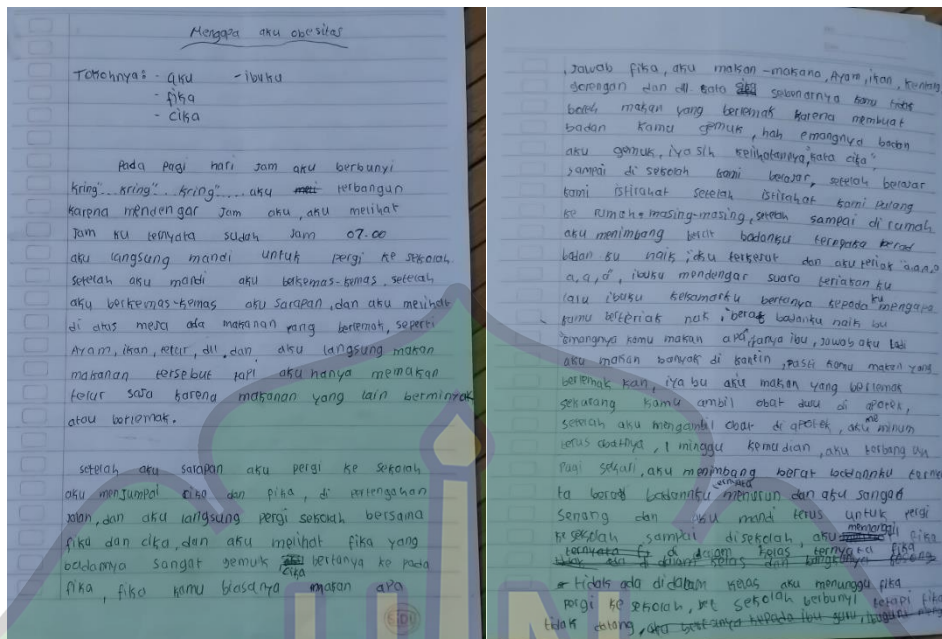 Mengapa aku obesitas
Tokohnya : - aku - ibuku
- fika
- cika
Pada pagi hari jam aku berbunyi
kring".... kring".. kring"..... aku terbangun
karena mendengar jam aku, aku melihat
jam ku ternyata sudah jam 07.00
aku langsung mandi untuk pergi ke sekolah.
setelah aku mandi aku berkemas-kemas, setelah
aku berkemas-kemas aku sarapan, dan aku melihat
di atas meja ada makanan yang berlemak, seperti
Ayam, ikan, telur, dll. dan aku langsung makan
makanan tersebut tapi aku hanya memakan
telur saja karena makanan yang lain berminyak
atau berlemak.
setelah aku sarapan aku pergi ke sekolah
aku menjumpai cika dan fika, di pertengahan
jalan, dan aku langsung pergi sekolah bersama
fika dan cika, dan aku melihat fika yang
badannya sangat gemuk cika bertanya ke pada
fika, fika kamu biasanya makan apa
, jawab fika, aku makan-makana, Ayam, ikan, kentang
gorengan dan dll. kata sebenarnya kamu tidak
boleh makan yang berlemak karena membuat
badan kamu gemuk, hah emangnya badan
aku gemuk, iya sih kelihatannya, kata cika"
sampai di sekolah kami belajar, setelah belajar
kami istirahat setelah istirahat kami pulang
ke rumah-masing-masing, setelah sampai di rumah
aku menimbang berat badanku ternyata berad
badan ku naik, aku terkejut dan aku teriak "a.a.a.a
a, a, a", ibuku mendengar suara teriakan ku
lalu ibuku kekamarku bertanya kepada ku mengapa
kamu berteriak nak, berat badanku naik bu
emangnya kamu makan apa, tanya ibu, jawab aku tadi
aku makan banyak di kantin, pasti kamu makan yang
berlemak kan, iya bu aku makan yang berlemak
sekarang kamu ambil obat dulu di apotek,
setelah aku mengambil obat di apotek, aku me minum
terus obatnya, 1 minggu kemudian, aku terbangun
pagi sekali, aku menimbang berat badannku terna
ta berat badannku ternyata menurun dan aku sangat
senang dan aku mandi terus untuk pergi
ke sekolah sampai disekolah, aku memanggil cika
ternyata di dalam kelas ternyata fika
tidak ada didalam kelas aku menunggu fika
pergi ke sekolah, bel sekolah berbunyi tetapi fika
tidak datang, aku bertanya kepada ibu guru,